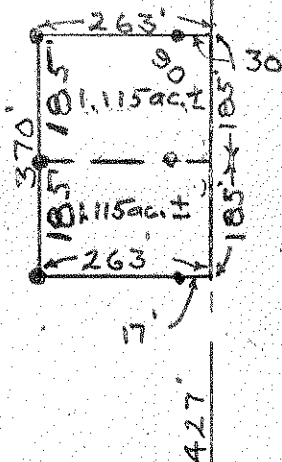 263'
30
90
185'
1.115ac.±
185'
370'
185'
1.115ac.±
185'
263'
17'
427'